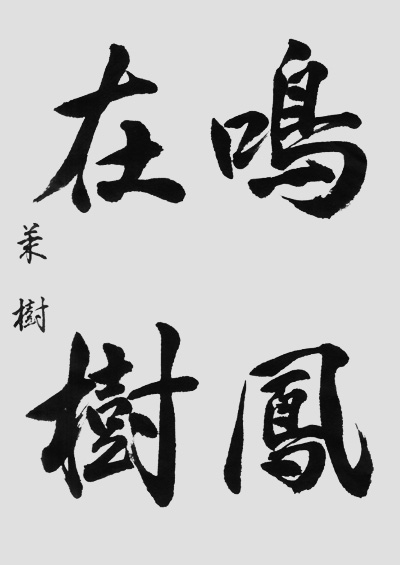 鳴鳳
在樹
葉樹